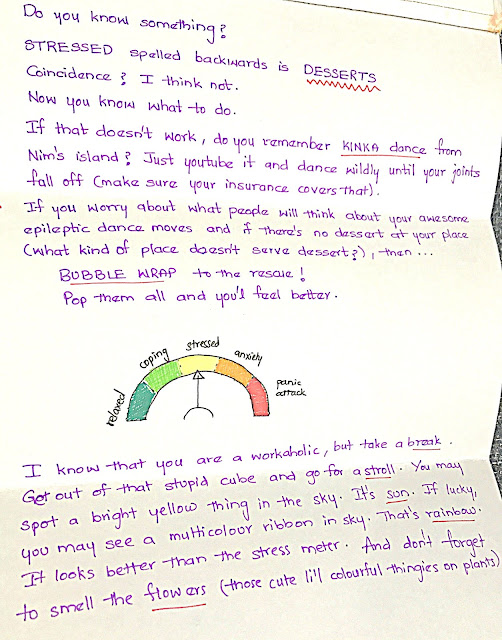 Do you know something?
STRESSED spelled backwards is DESSERTS
Coincidence? I think not.
Now you know what to do.
If that doesn't work, do you remember KINKA dance from
Nim's island? Just youtube it and dance wildly until your joints
fall off (make sure your insurance covers that).
If you worry about what people will think about your awesome
epileptic dance moves and if there's no dessert at your place
(what kind of place doesn't serve dessert?), then...
BUBBLE WRAP to the rescue!
Pop them all and you'l feel better.
relaxed
coping
stressed
anxiety
panic
attack
I know that you are a workaholic, but take a break.
Get out of that stupid cube and go for a stroll. You may
spot a bright yellow thing in the sky. It's sun. If lucky,
you may see a multicolour ribbon in sky. That's rainbow.
It looks better than the stress meter. And don't forget
to smell the flowers (those cute li'l colourful thingies on plants)